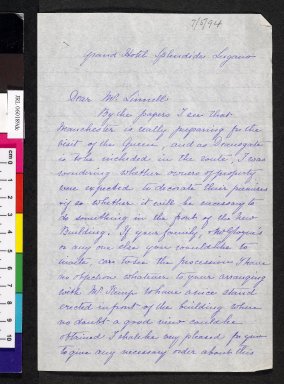 7/5/94
Grand Hotel Splendide Lugano
Dear Mr. Linnell
By the papers I see that
Manchester is really preparing for the
visit of the Queen, and as Deansgate
is to be included in the route, I was
wondering whether owners of property
were expected to decorate their premises
if so whether it will be necessary to
do something in the front of the New
Building. If your family,
or any one else you would like to
invite, can to see the procession, I have
no objection whatever to your arranging
with Mr. to have a nice stand
erected in front of the building where
no doubt a good view could be
obtained I shall be very pleased for you
to give any necessary order about this
cm 0 1 2 3 4 5 6 7 8 9 10